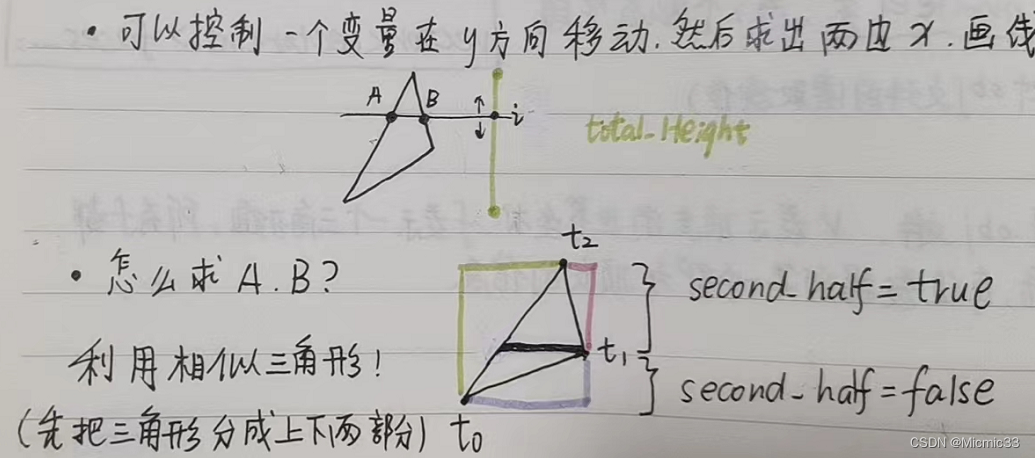 • 可以控制一个变量在y方向移动.然后求出两边x.画线
A B
i
total-Height
t2
• 怎么求A.B?
second-half=true
利用相似三角形!
t1
second-half=false
(先把三角形分成上下两部分) t0
CSDN @Micmic33